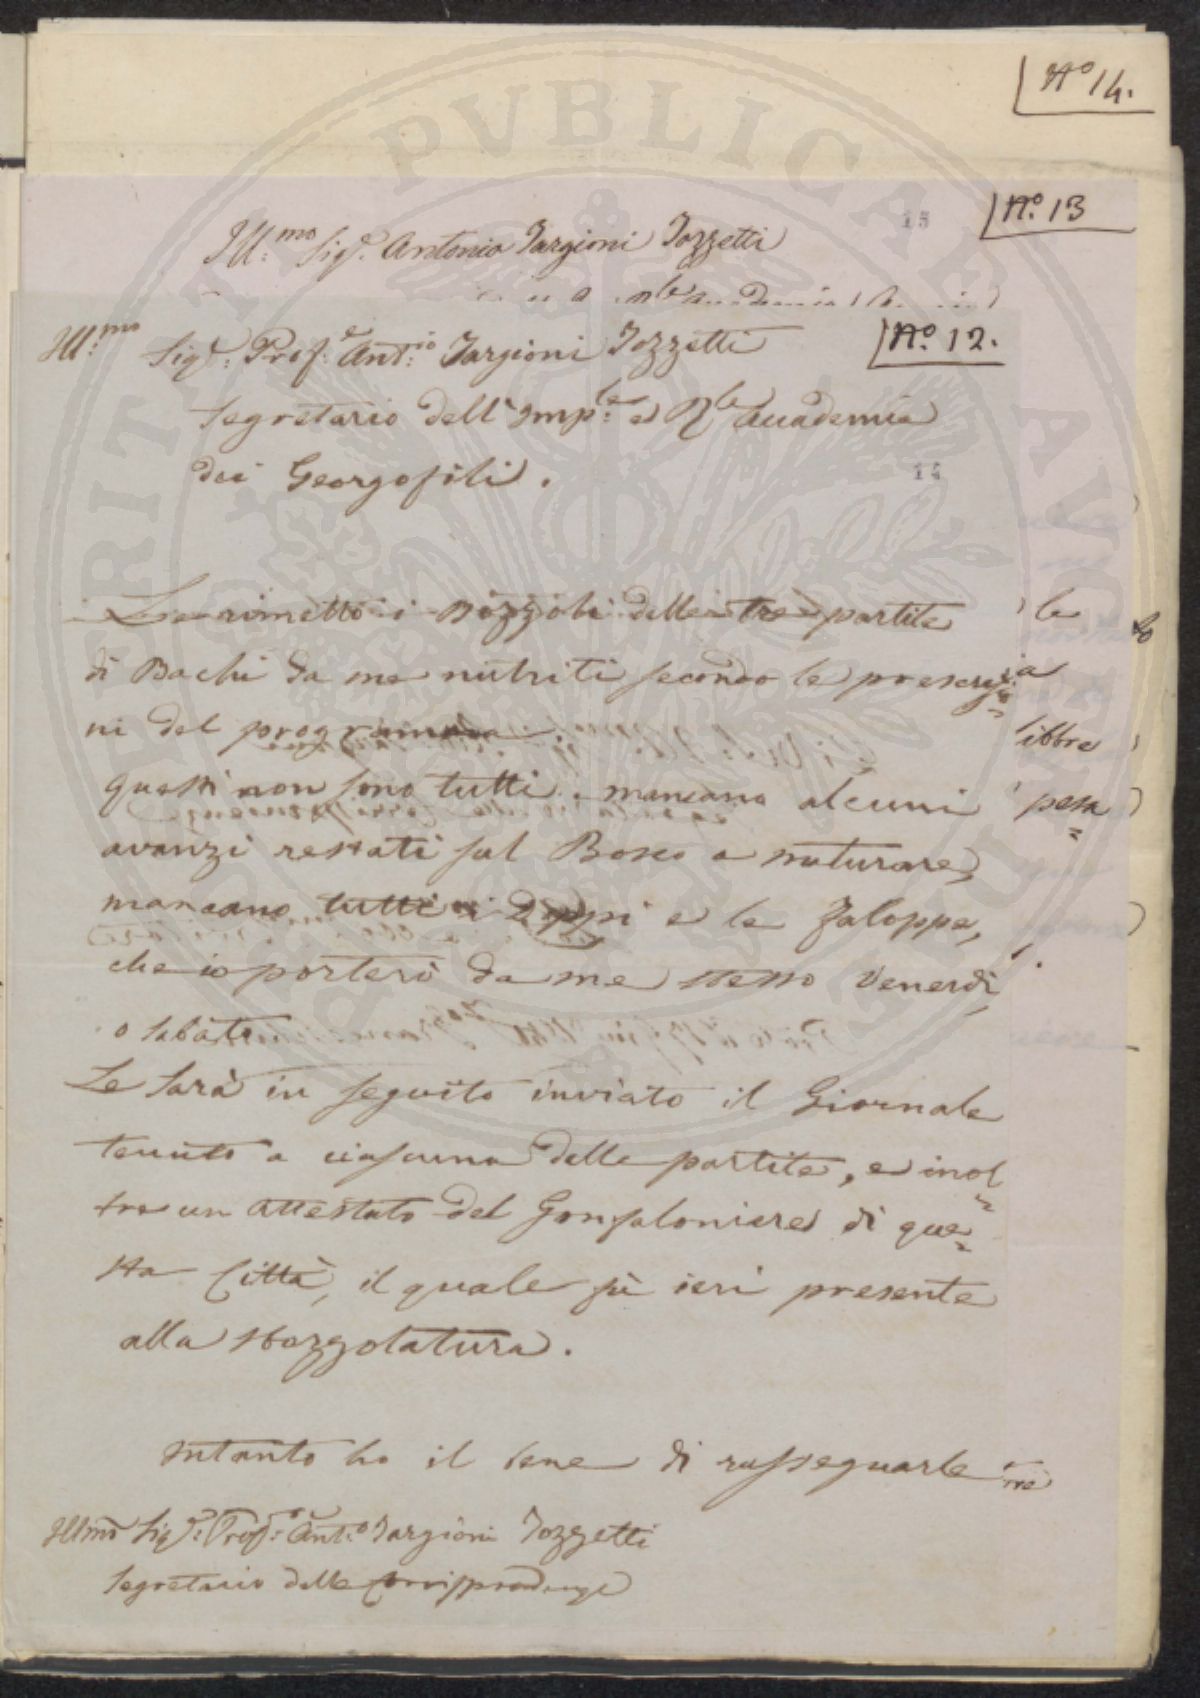 N.o 14.
N.o 13
15
Ill:mo Sig.e Antonio Targioni Tozzetti
N.o 12.
Ill:mo Sig.e: Prof.e Ant:io Targioni Tozzetti
Segretario dell'Imp:le e R:le Accademia
dei Georgofili.
14
Le rimetto i Bozzoli delle tre partite
di Bachi da me nutriti secondo le prescrizio=
ni del programma.
questi non sono tutti. mancano alcuni
avanzi restati sul Bosco a maturare,
mancano tutti i Doppi e le faloppe,
che io porterò da me stesso Venerdì,
o sabato
Le sarà in seguito inviato il Giornale
tenuto a ciascuna delle partite, e inol=
tre un attestato del Gonfaloniere di que=
sta Città, il quale fù ieri presente
alla sbozzolatura.
Intanto ho il bene di rassegnarle
Illmo Sig.e: Prof.e Ant:o Targioni Tozzetti
Segretario delle Corrispondenze
le
libbre
pesa=
PVBLICAE